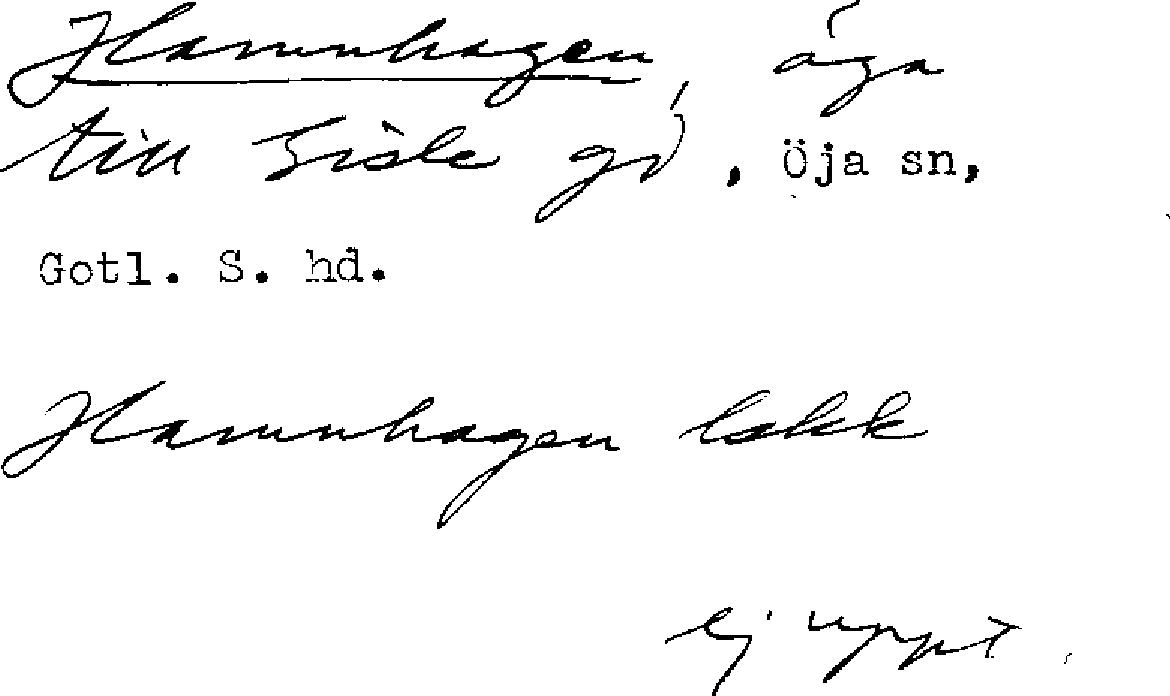 Hamnhagen, äga
till Gisle gd, Öja sn,
Gotl. S. hd.
Hamnhagen
ej uppt.